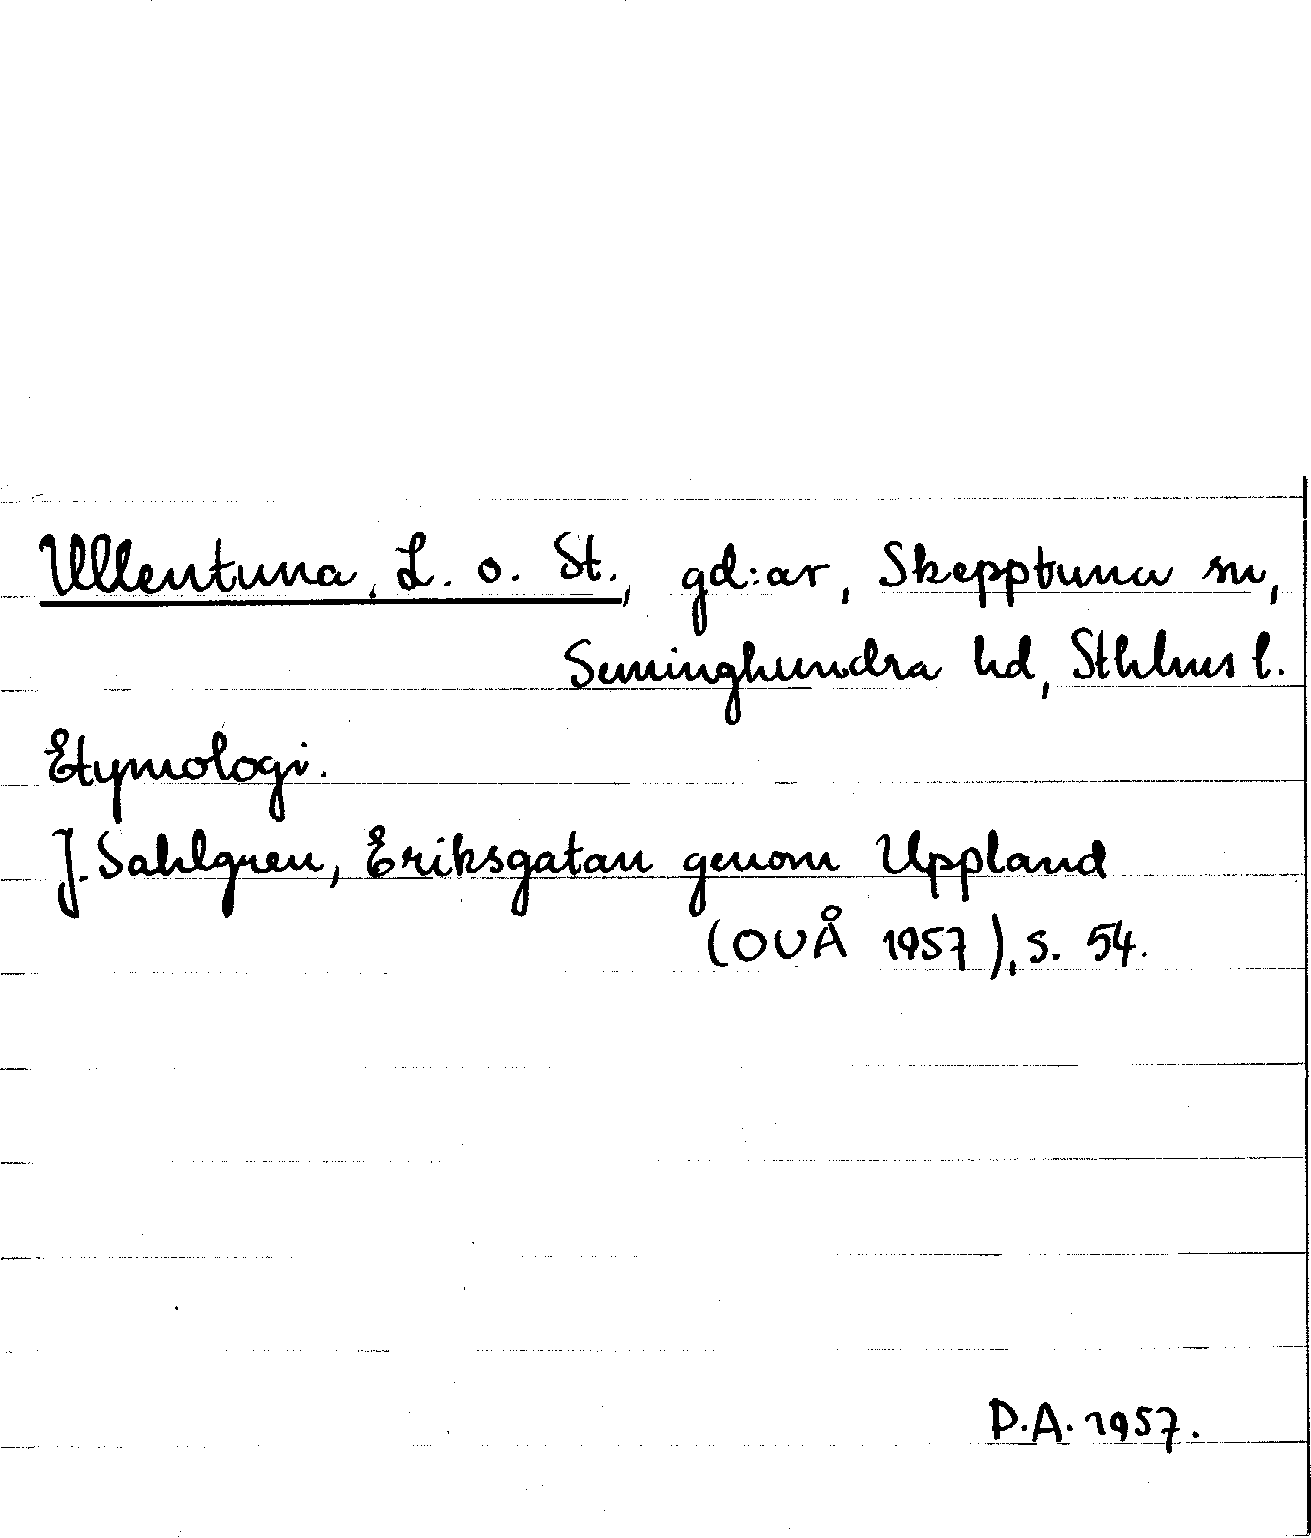 Ullentuna, L. o. St., gd:ar, Skepptuna sn,
Seminghundra hd, Sthlms l.
Etymologi.
J. Sahlgren, Eriksgatan genom Uppland
(OUÅ 1957), s. 54.
D.A. 1957.